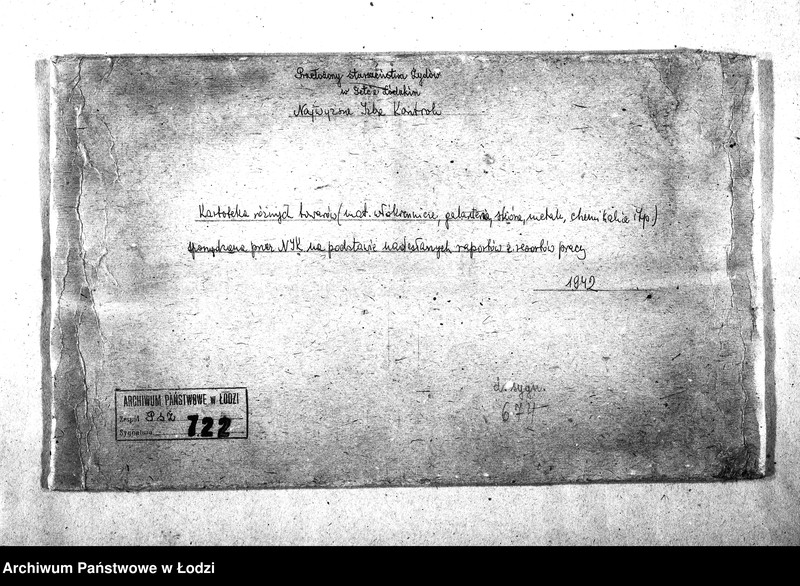 Przełożony Starszeństwa Żydów
w Getcie Łódzkim
Najwyższa Izba Kontroli
Kartoteka różnych towarów (mat. włókiennicze, galanteria, skóra, metale, chemikalia itp.)
sporządzona przez NIK na podstawie nadesłanych raportów z resortów pracy
1942
ARCHIWUM PAŃSTWOWE w ŁODZI
Zespół PSŻ
Sygnatura 722
d. sygn.
677
Archiwum Państwowe w Łodzi